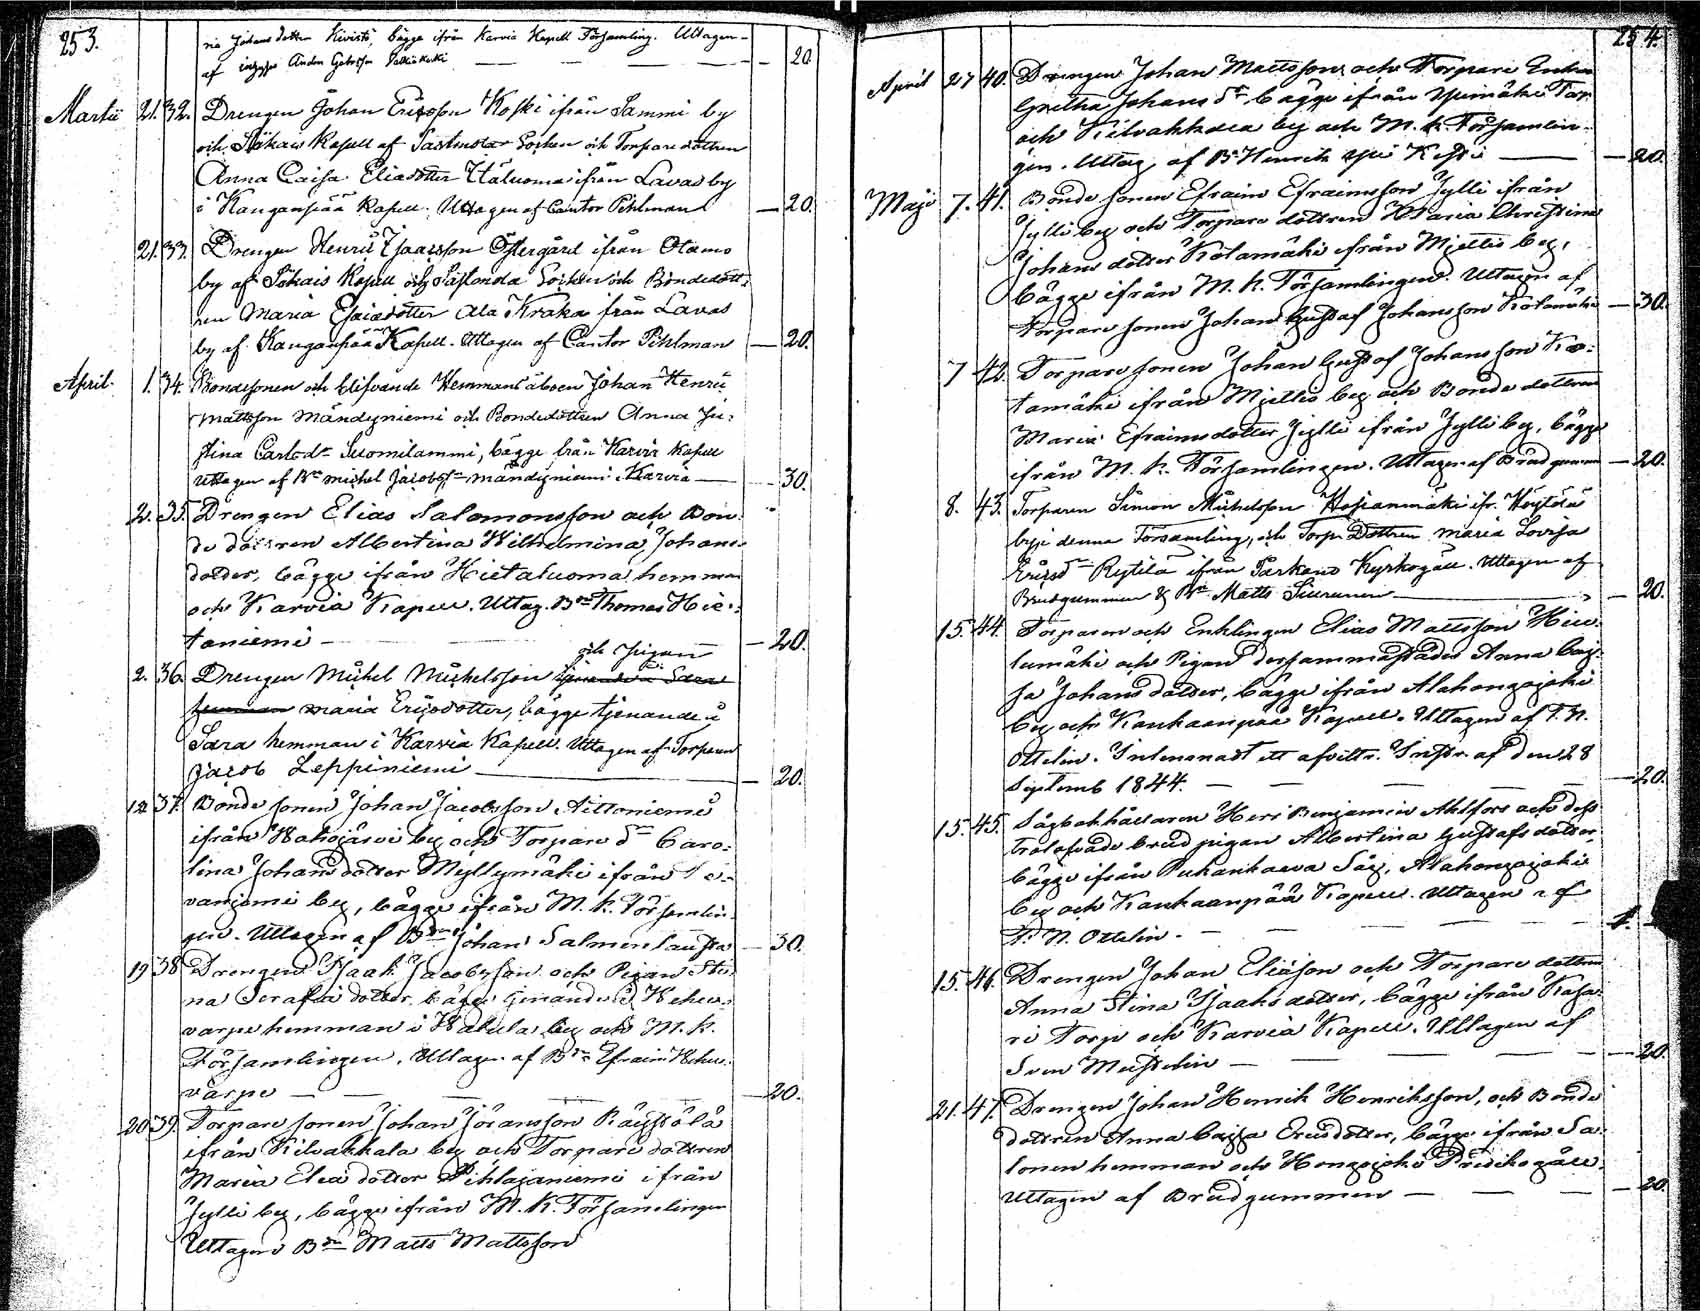 253.
ria Johans dotter Kivistö, bägge ifrån Karvia Kapell Församling. Uttagen
af Anders - 20.
Martii 21. 32. Drengen Johan Ericsson Koski ifrån Sammi by
och Jökais Kapell af Sastmola Socken och Torpare dottren
Anna Caisa Eliædotter Häluoma ifrån Lavas by
i Kanganpää Kapell. Uttagen af Cantor Pihlman - 20.
21. 33. Drengen Henric Isaacsson Östergård ifrån Otamo
by af Jökais Kapell och Sastmola Socken och Bondedott-
ren Maria Esaiædotter Ala Kraka ifrån Lavas
by af Kanganpää Kapell. Uttagen af Cantor Pihlman - 20.
April. 1. 34. Bondesonen och blifvande Hemmans åboen Johan Henric
Mattsson Mändyniemi och Bondedottren Anna Ju-
stina Carlsdr Suomilammi, bägge från Karvia Kapell
Uttagen af Bn Michel Jacobss Mändyniemi i Karvia - 30.
2. 35. Drengen Elias Salomonsson och Bon-
de dottren Albertina Wilhelmina Johans
dotter, bägge ifrån Hietaluoma hemman
och Karvia Kapell. Uttag. Bdn Thomas Hie-
taniemi - 20.
och Pigan
2. 36. Drengen Michel Michelsson Sara
hemman Maria Ericsdotter, bägge tjenande i
Sara hemman i Karvia Kapell. Uttagen af Torparen
Jacob Leppiniemi - 20.
12. 37. Bonde sonen Johan Jacobsson Aittoniemi
ifrån Hahojärvi by och Torpare dr Caro-
lina Johans dotter Myllymäki ifrån Le-
vanjemi by, bägge ifrån M. K. Församlin-
gen. Uttagen af Bdn Johan Salmenlausta - 30.
19. 38. Drengen Isaak Jacobsson och Pigan Sti-
na Serafia dotter, bägge tjenande i
varpe hemman i Hakula by och M. K.
Församlingen. Uttagen af Bdn Efraim
varpe - 20.
20. 39. Torpare sonen Johan Jöransson Räystölä
ifrån Kilvakkala by och Torpare dottren
Maria Eliæ dotter Pihlajaniemi ifrån
Jylli by, bägge ifrån M. K. Församlingen
Uttagen Bdn Matts Mattsson
254.
April 27 40. Drengen Johan Mattsson och Torpare Enkan
Gretha Johans dr bägge ifrån Torp
och Kilvakkala by och M. K. Församlin-
gen. Uttag. af Bn Henrik - 20.
Maji 7. 41. Bonde sonen Efraim Efraimsson Jylli ifrån
Jylli by och Torpare dottren Maria Christina
Johans dotter Kotamäki ifrån Mjettis by,
bägge ifrån M. K. Församlingen. Uttagen af
Torpare sonen Johan Gustaf Johansson Kotamäki - 30.
7 42. Torpare sonen Johan Gustaf Johansson Ko-
tamäki ifrån Mjettis by och Bonde dottren
Maria Efraims dotter Jylli ifrån Jylli by, bägge
ifrån M. K. Församlingen. Uttagen af Brudgummen - 20.
8. 43. Torparen Simon Michelsson ifr.
by i denna Församling, och Torp. Dottren Maria Lovisa
Ericsdr Rytilä ifrån Parkano Kyrkogäll. Uttagen af
Brudgummen & Bn Matts Siurunen - 20.
15. 44. Torparen och Enklingen Elias Mattsson
lumäki och Pigan dersammastädes Anna Caj-
sa Johans dotter, bägge ifrån Alahongojoki
by och Kankaanpää Kapell. Uttagen af
Ottelin. Inlemnadt ett afvittr. Instr. af den 28
Septemb 1844. - 20.
15. 45. Sågbokhållaren Herr Benjamin Ahlfors och dess
trolofvade brud pigan Albertina Gustafs dotter,
bägge ifrån Såg, Alahongojoki
by och Kankaanpää Kapell. Uttagen af
N. Ottelin. - 1. -
15. 46. Drengen Johan Eliæson och Torpare dottren
Anna Stina Isaaks dotter, bägge ifrån Kasa-
ri Torp och Karvia Kapell. Uttagen af
Sven Mustelin - 20.
21. 47. Drengen Johan Henrik Henriksson, och Bonde
dottren Anna Cajsa Ericsdotter, bägge ifrån Sa-
lonen hemman och Hongojoki Prediko gäll.
Uttagen af Brudgummen - 20.